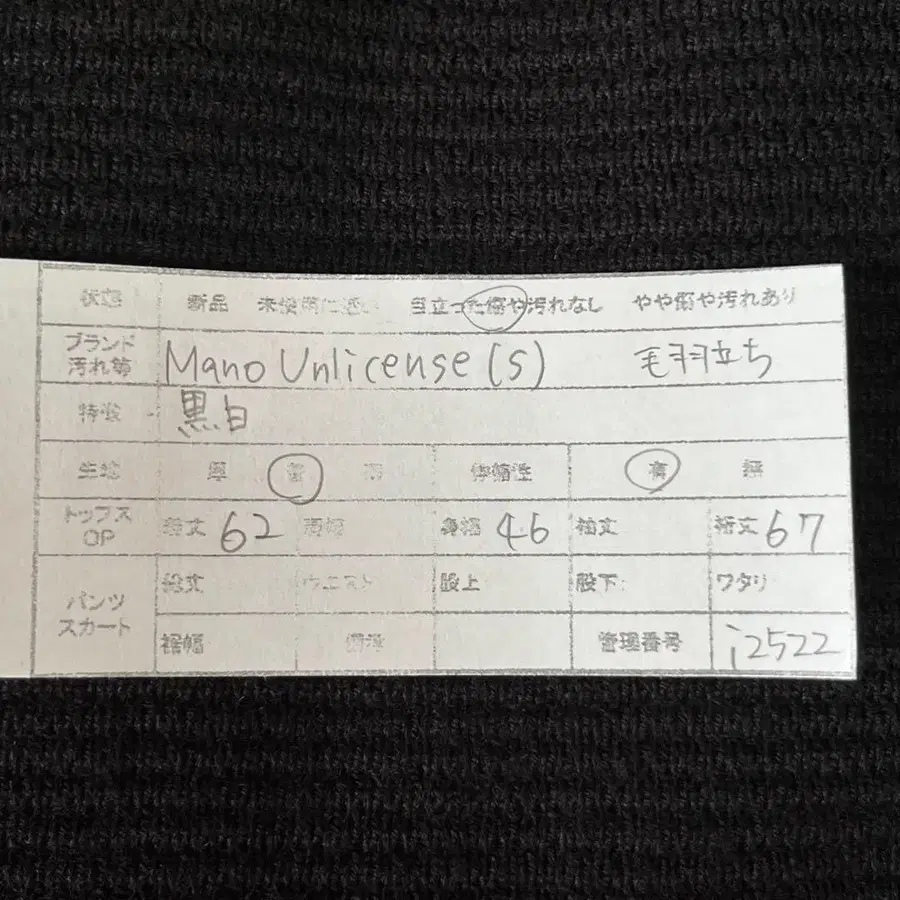 状態 新品 未使用に近い 目立った傷や汚れなし やや傷や汚れあり
ブランド
汚れ等 Mano Unlicense (S) 毛羽立ち
特徴 黒白
生地 厚 普 薄 伸縮性 有 無
トップス
OP 着丈 62 肩幅 身幅 46 袖丈 裄丈 67
パンツ
スカート
総丈 ウエスト 股上 股下 ワタリ
裾幅 備考 管理番号 i2522